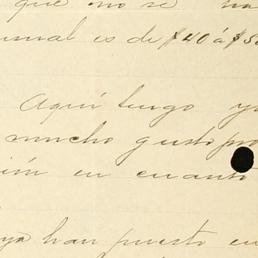 que no se ha
usual es de $40 á $50
Aquí tengo ya
mucho gusto pro
ión en cuanto
ya han puesto en